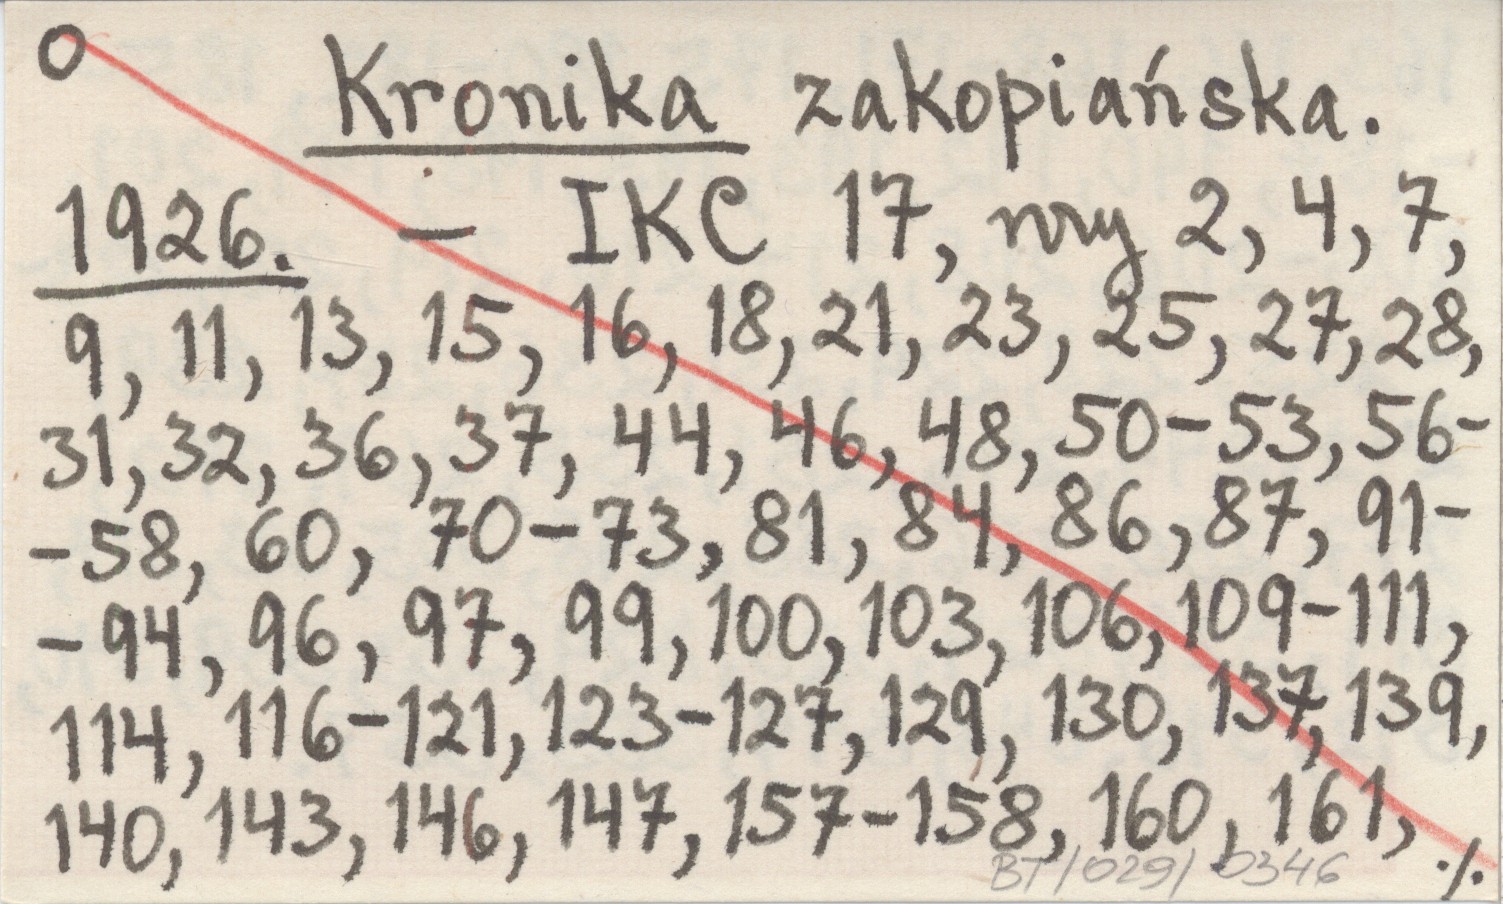 O
Kronika zakopiańska.
1926. — IKC 17, nry 2, 4, 7,
9, 11, 13, 15, 16, 18, 21, 23, 25, 27, 28,
31, 32, 36, 37, 44, 46, 48, 50-53, 56-
-58, 60, 70-73, 81, 84, 86, 87, 91-
-94, 96, 97, 99, 100, 103, 106, 109-111,
114, 116-121, 123-127, 129, 130, 137, 139,
140, 143, 146, 147, 157-158, 160, 161, ./.
BT/029/0346